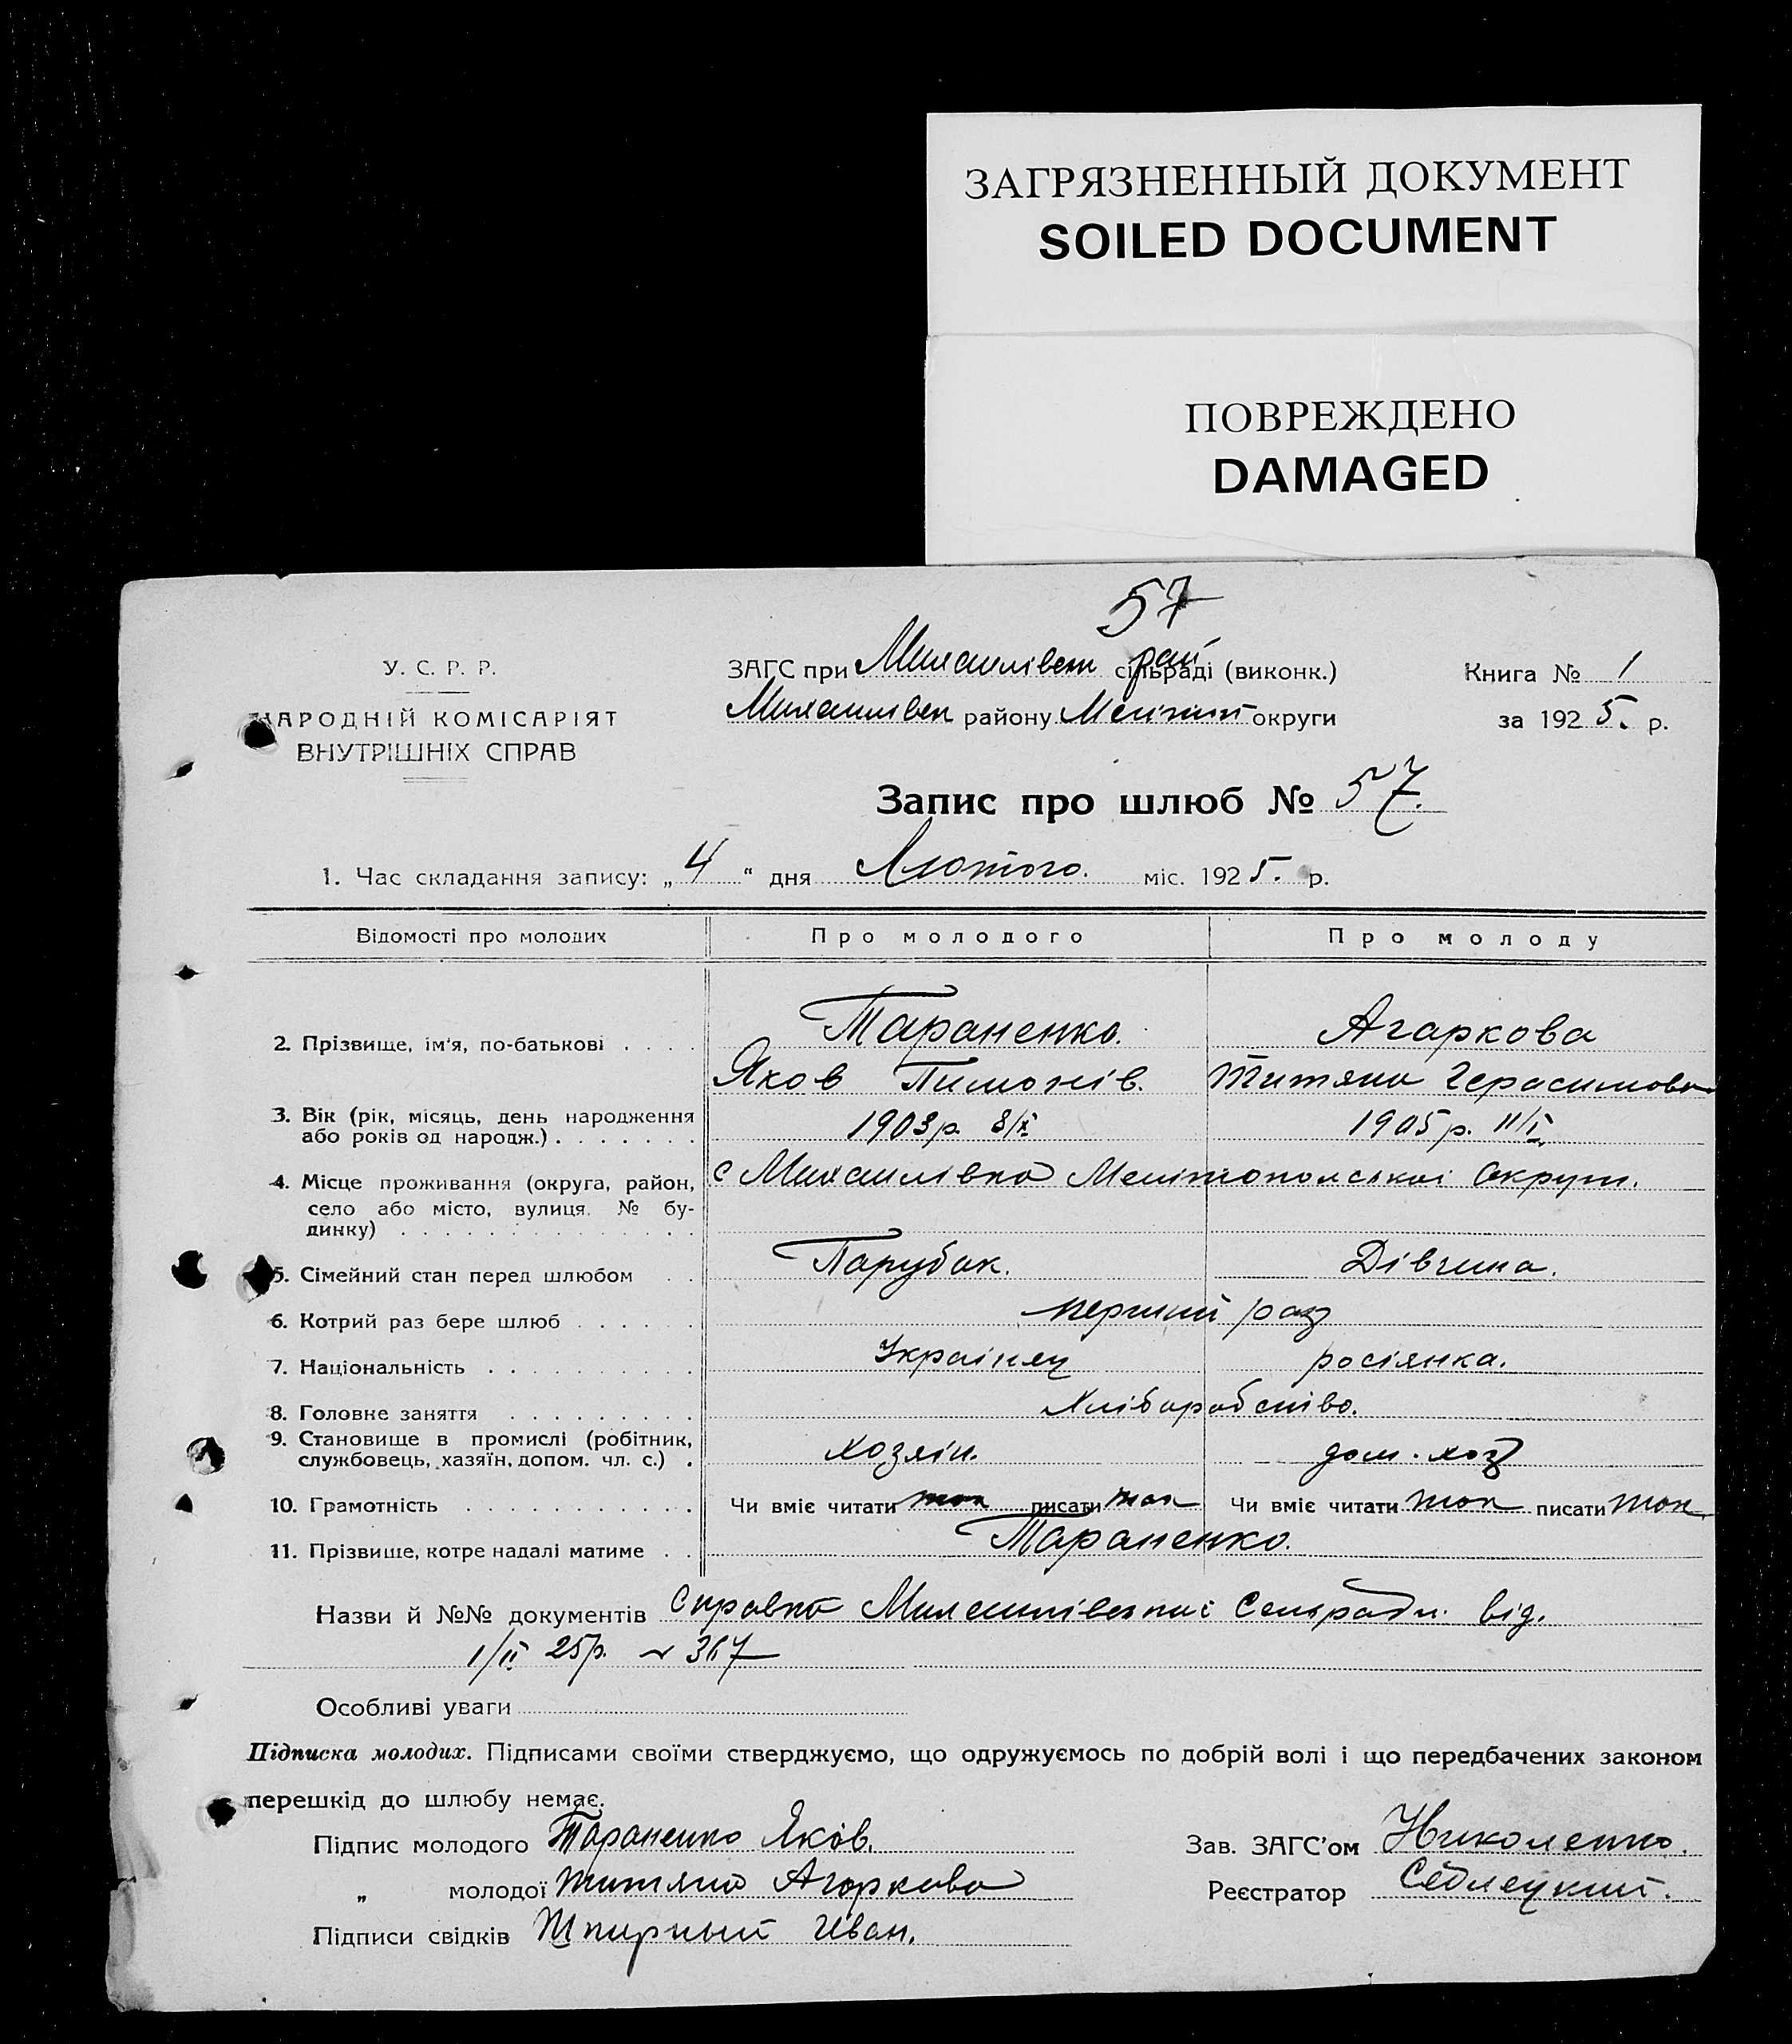 ЗАГРЯЗНЕННЫЙ ДОКУМЕНТ
SOILED DOCUMENT
ПОВРЕЖДЕНО
DAMAGED
57
У. С. Р. Р.
НАРОДНІЙ КОМІСАРІЯТ
ВНУТРІШНІХ СПРАВ
ЗАГС при Михайлівськ рай сільраді (виконк.)
Михайлівськ району Меліт округи
Книга № 1
за 1925. р.
Запис про шлюб № 57.
1. Час складання запису: „4“ дня Лютого. міс. 1925. р.
Відомості про молодих Про молодого Про молоду
2. Прізвище, ім'я, по-батькові Тараненко. Агаркова
Яков Тимохів. Титяна Герасимова
3. Вік (рік, місяць, день народження або років од народж.) 1903р. 8/X 1905р. 11/I
4. Місце проживання (округа, район, село або місто, вулиця № будинку) с Михайлівка Мелітопольської Округи.
5. Сімейний стан перед шлюбом Парубак. Дівчина.
6. Котрий раз бере шлюб перший раз
7. Національність Українец росіянка.
8. Головне заняття Хліборобство.
9. Становище в промислі (робітник, службовець, хазяїн, допом. чл. с.) хозяін. дом. хоз
10. Грамотність Чи вміє читати так писати так Чи вміє читати так писати так
11. Прізвище, котре надалі матиме Тараненко.
Назви й №№ документів Справка Михайлівської Сельради від.
1/II 25р. 367
Особливі уваги
Підписка молодих. Підписами своїми стверджуємо, що одружуємось по добрій волі і що передбачених законом
перешкід до шлюбу немає.
Підпис молодого Тараненко Яків. Зав. ЗАГС'ом Николенко.
„ молодої Титяна Агаркова Реєстратор Седлецкий.
Підписи свідків Шпирный Иван.